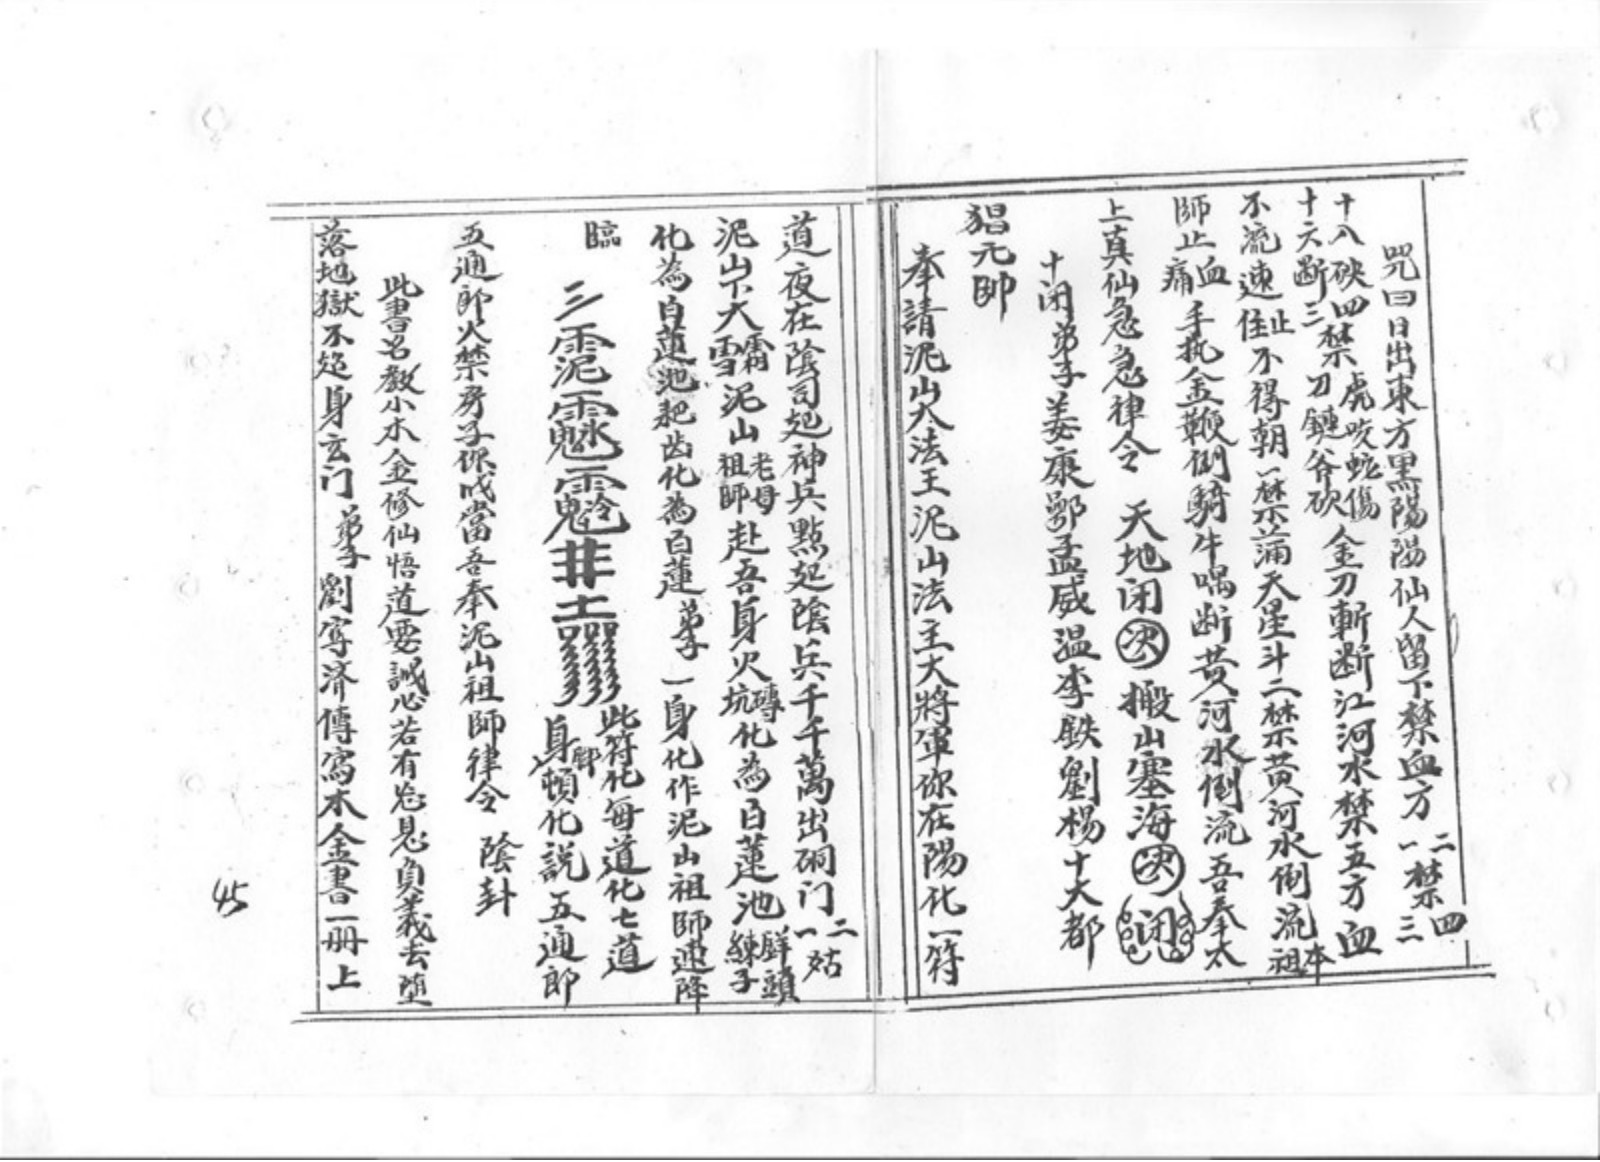 咒曰日出東方黑陽陽仙人留下禁血方一二禁三四
十八砍四禁虎咬蛇傷金刀斬断江河水禁五方血
十六断三刀鏈斧砍
不流速住止不得朝一禁滿天星斗二禁黄河水倒流祖本
師止血痛手执金鞭倒騎牛喝断黄河水倒流吾奉太
上真仙急急律令 天地闭次搬山塞海次闭
十闭弟子姜康鄧孟威温李鉄劉楊十大都
猖元帥
奉請泥山大法王泥山法主大將軍你在陽化一符
道夜在陰司起神兵點起陰兵千千萬出硐门一二姑
泥山下大雪霜泥山祖師老母赴吾身火坑磚化為白蓮池練子鉡頭
化為白蓮池耙齿化為白蓮弟子一身化作泥山祖師速降
臨
此符化每道化七道
身腳頓化説五通郎
五通郎火禁房子你戌當吾奉泥山祖師律令 陰卦
此書名教小木金修仙悟道要誠心若有忘恩負義去墮
落地獄不超身玄门弟子劉寧济傳寫木金書一册上
45